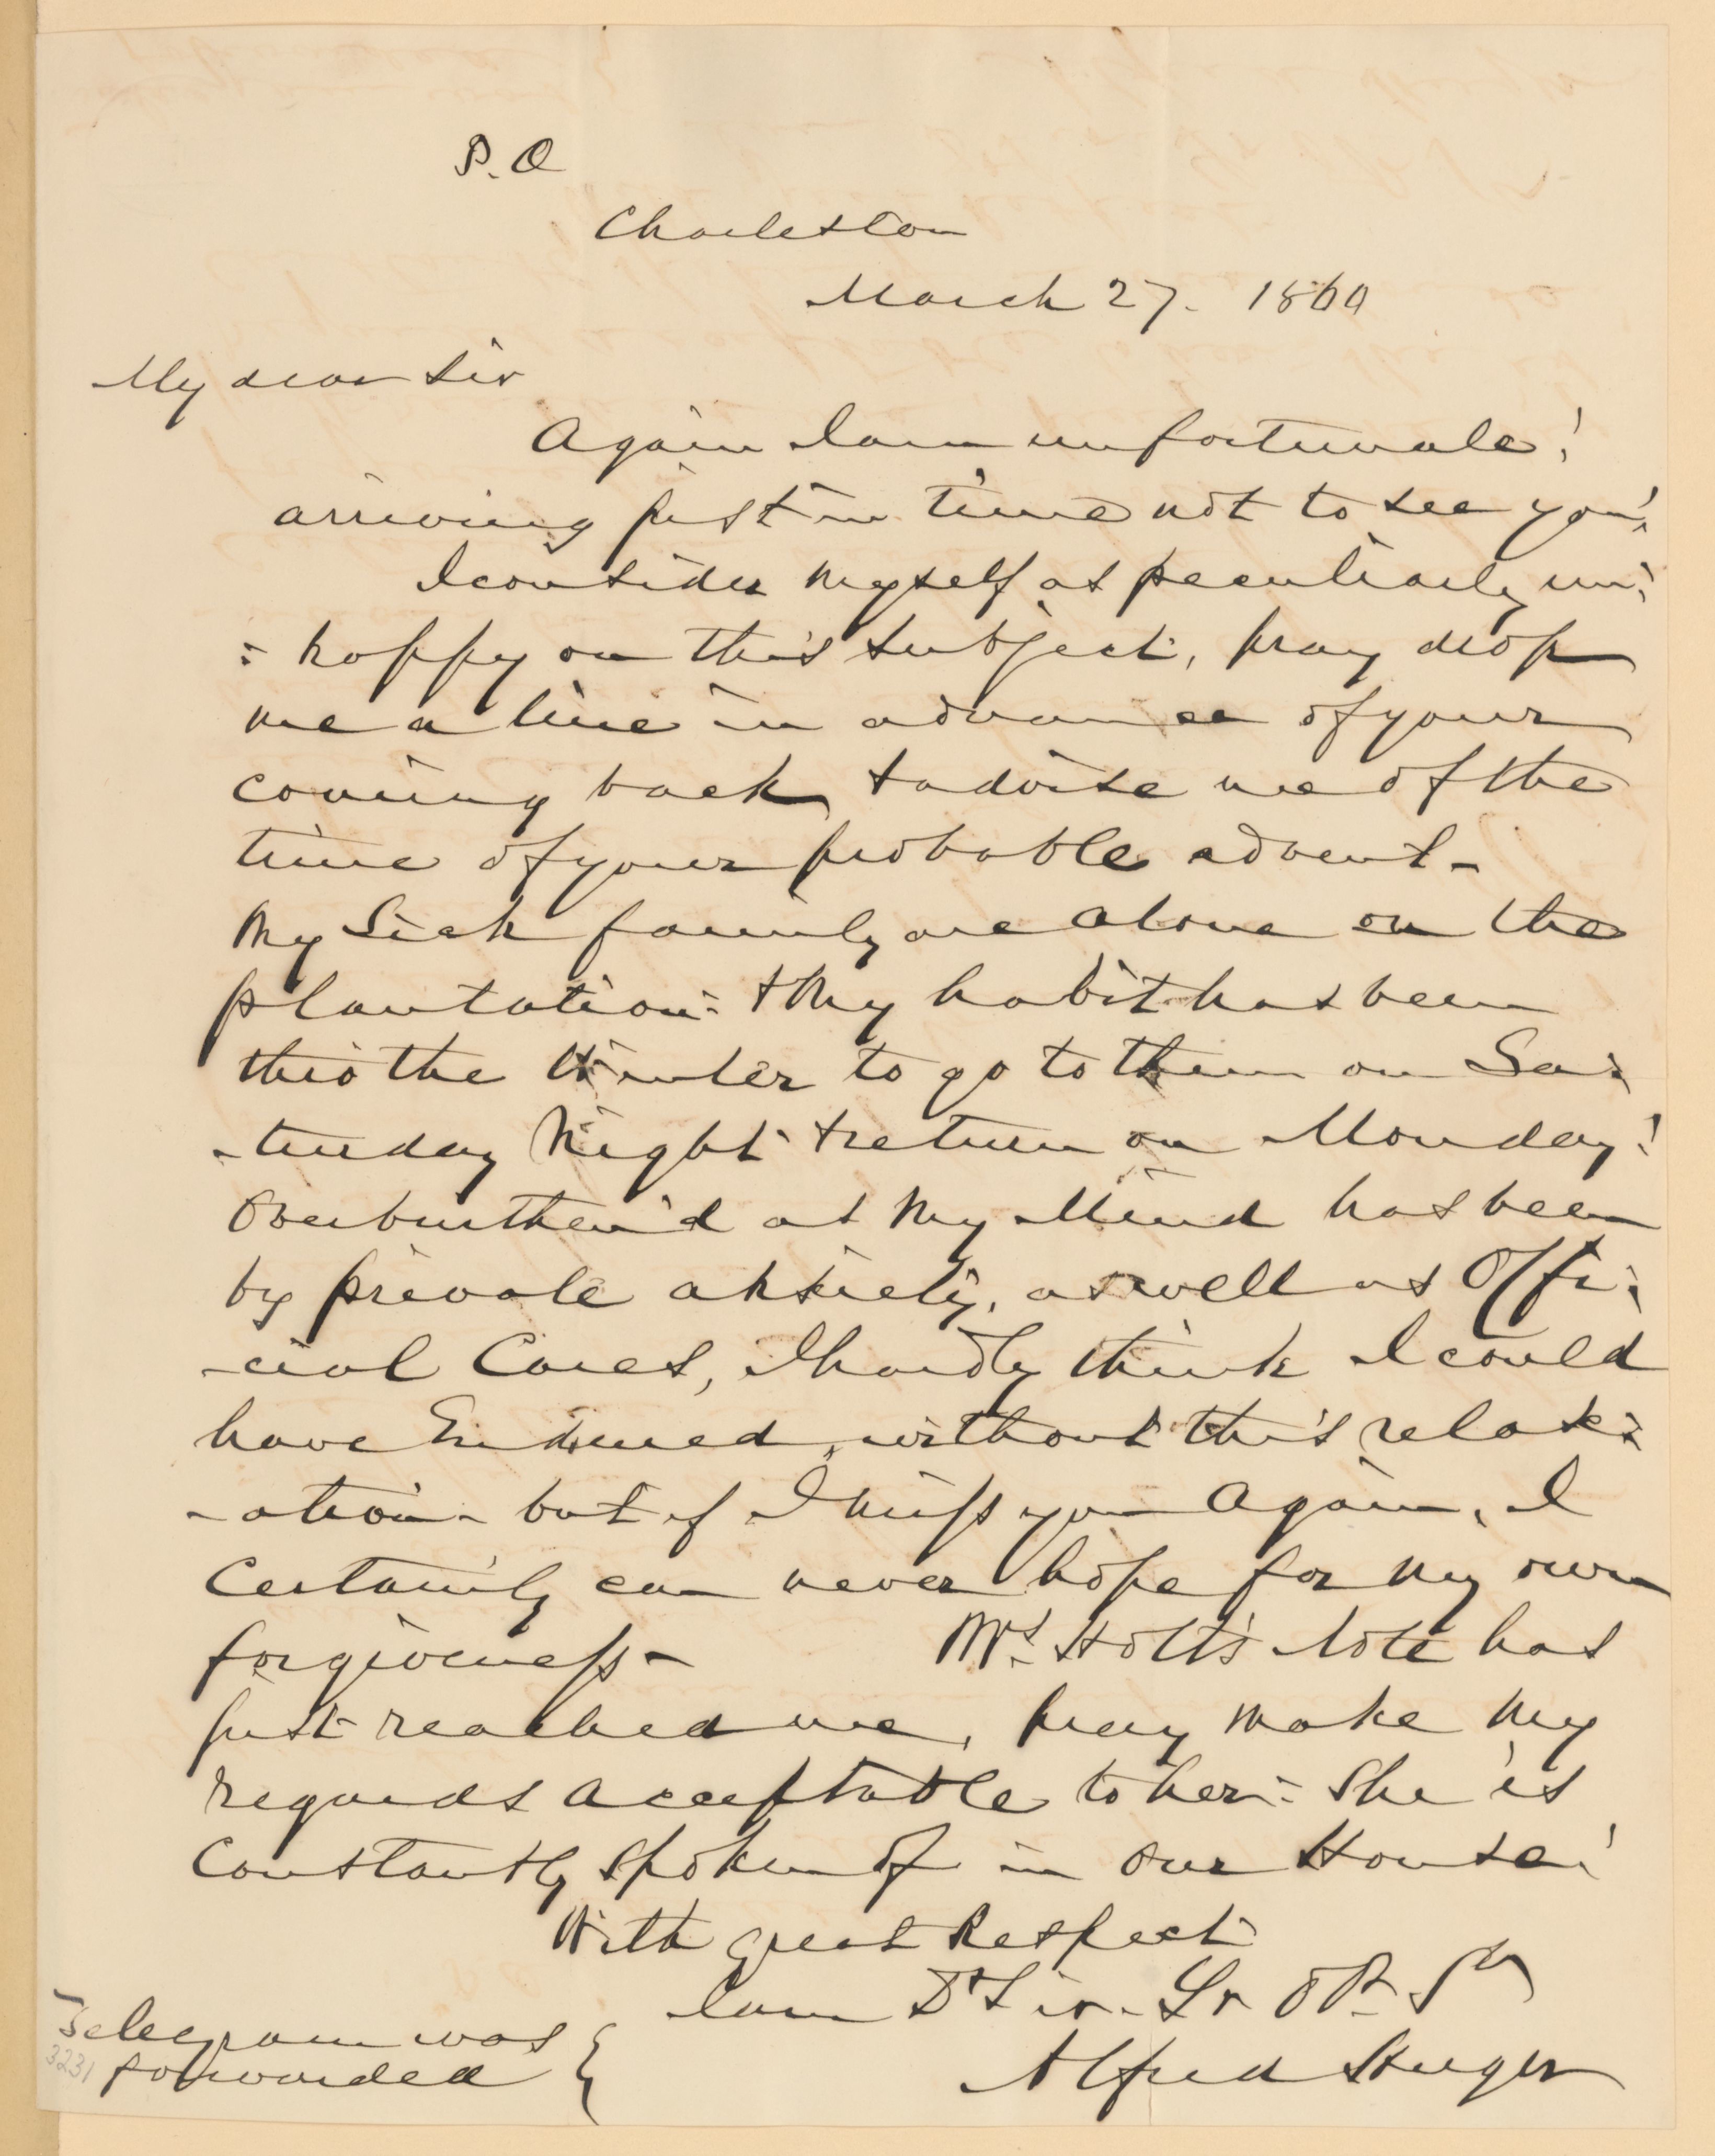 P. O
Charleston
March 27. 1860
My dear Sir
Again I am unfortunate!
arriving just in time not to see you!
I consider myself as peculiarly un:
: happy on this subject, pray drop
me a line in advance of your
coming back, to advise me of the
time of your probable advent-
My Sick family are alone on the
plantation: & My habit has been
thro the Winter to go to them on Sa:
-turday Night & return on Monday!
Overburthen'd as My Mind has been
by private anxiety, as well as Offi:
-cial Cares, I hardly think I could
have Endured, without this relax:
-ation - but if I miss you Again, I
Certainly can never hope for my own
forgiveness - Mrs Holt's Note has
just reached me, pray make My
regards acceptable to her: She is
Constantly spoken of in our House!
With great Respect
I am Dr Sir. Yr Ob. St
Alfred Huger
Telegram was
forwarded
3231